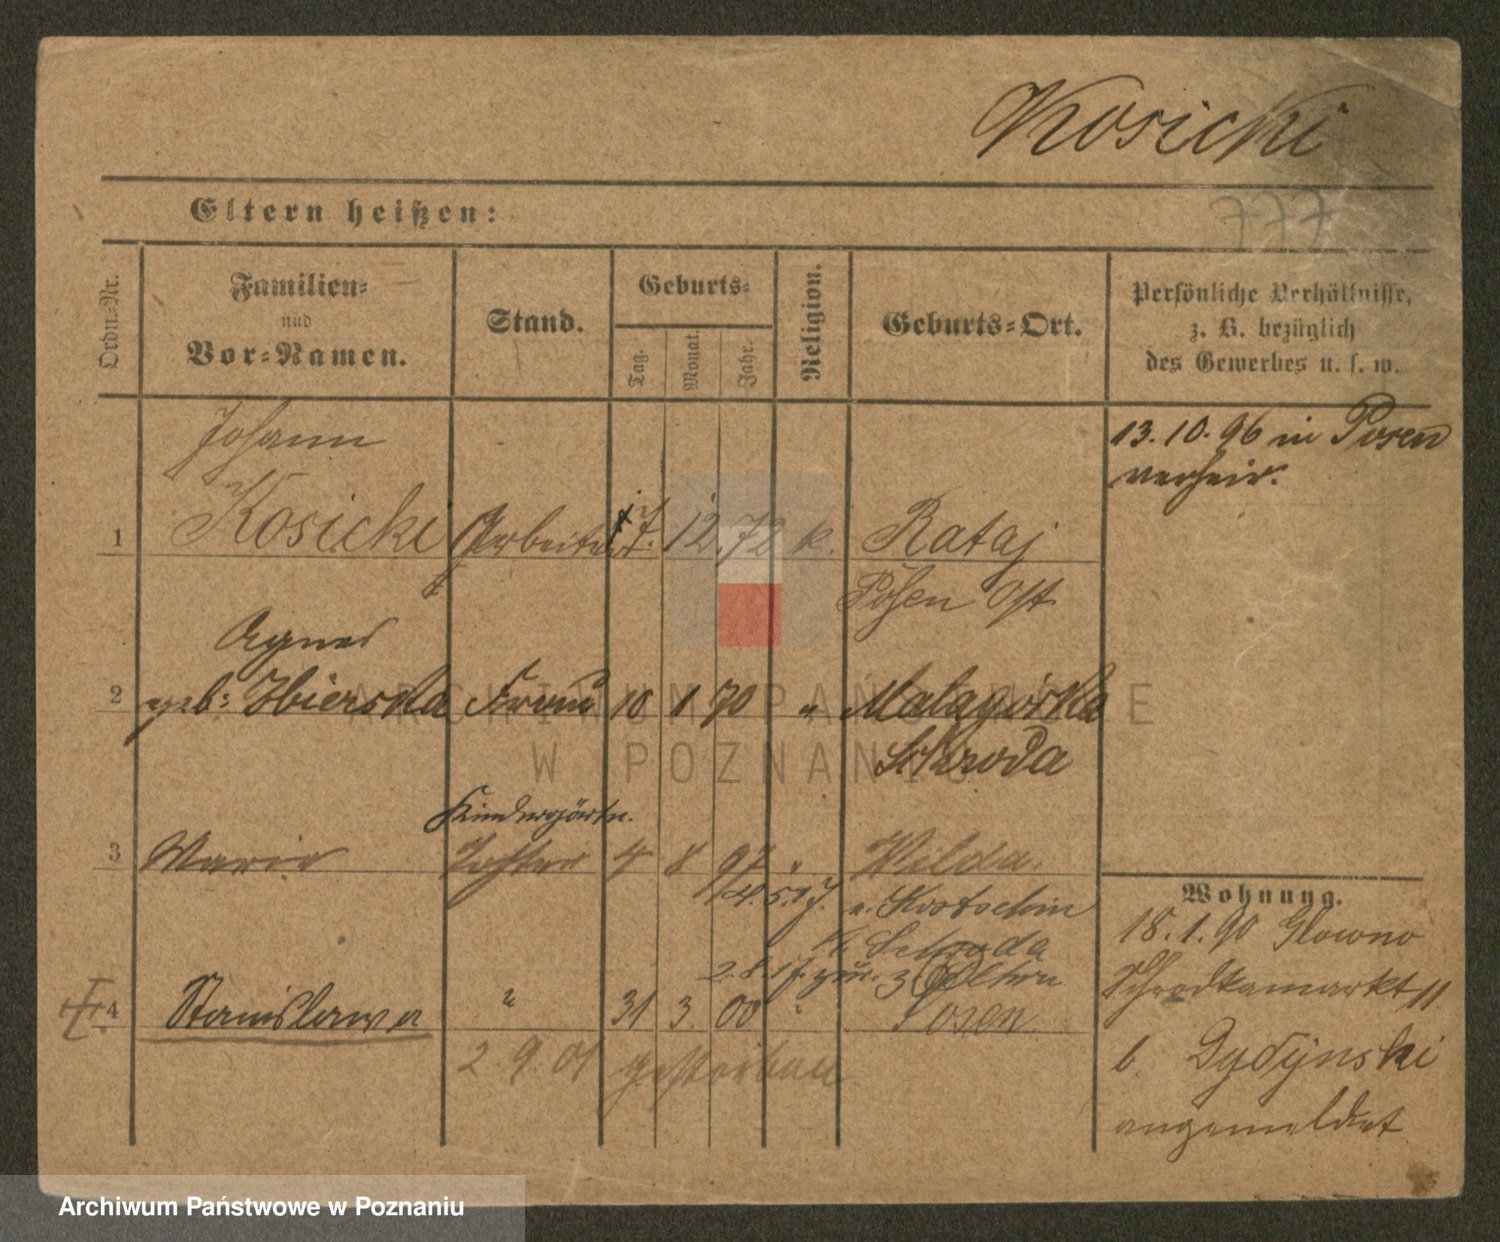 Kosicki
777
Eltern heißen:
Ordn.-Nr.
Familien-
und
Vor-Namen.
Stand.
Geburts-
Tag.
Monat.
Jahr.
Religion.
Geburts-Ort.
Persönliche Verhältnisse,
z. B. bezüglich
des Gewerbes u. s. w.
Johann
13.10.96 in Posen
verheir.
1 Kosicki Arbeiter 7. 12. 72 k. Rataj
Posen Ost
Agnes
2 geb: Zbierska Frau 10 1 70 " Matagórka
Schroda
Kindergärtn.
3 Marie Tochter 4 8 97 " Wilda.
14.5.17. n. Kostschin
Kr. Schroda
2.8.17. zur. z. Eltern
4 Stanislawa " 31 3 00 " Posen
2 9. 01 gestorben
Wohnung.
18.1.90 Glowno
Schrodkamarkt 11
b. Dydynski
angemeldet
ARCHIWUM PAŃSTWOWE
W POZNANIU
Archiwum Państwowe w Poznaniu